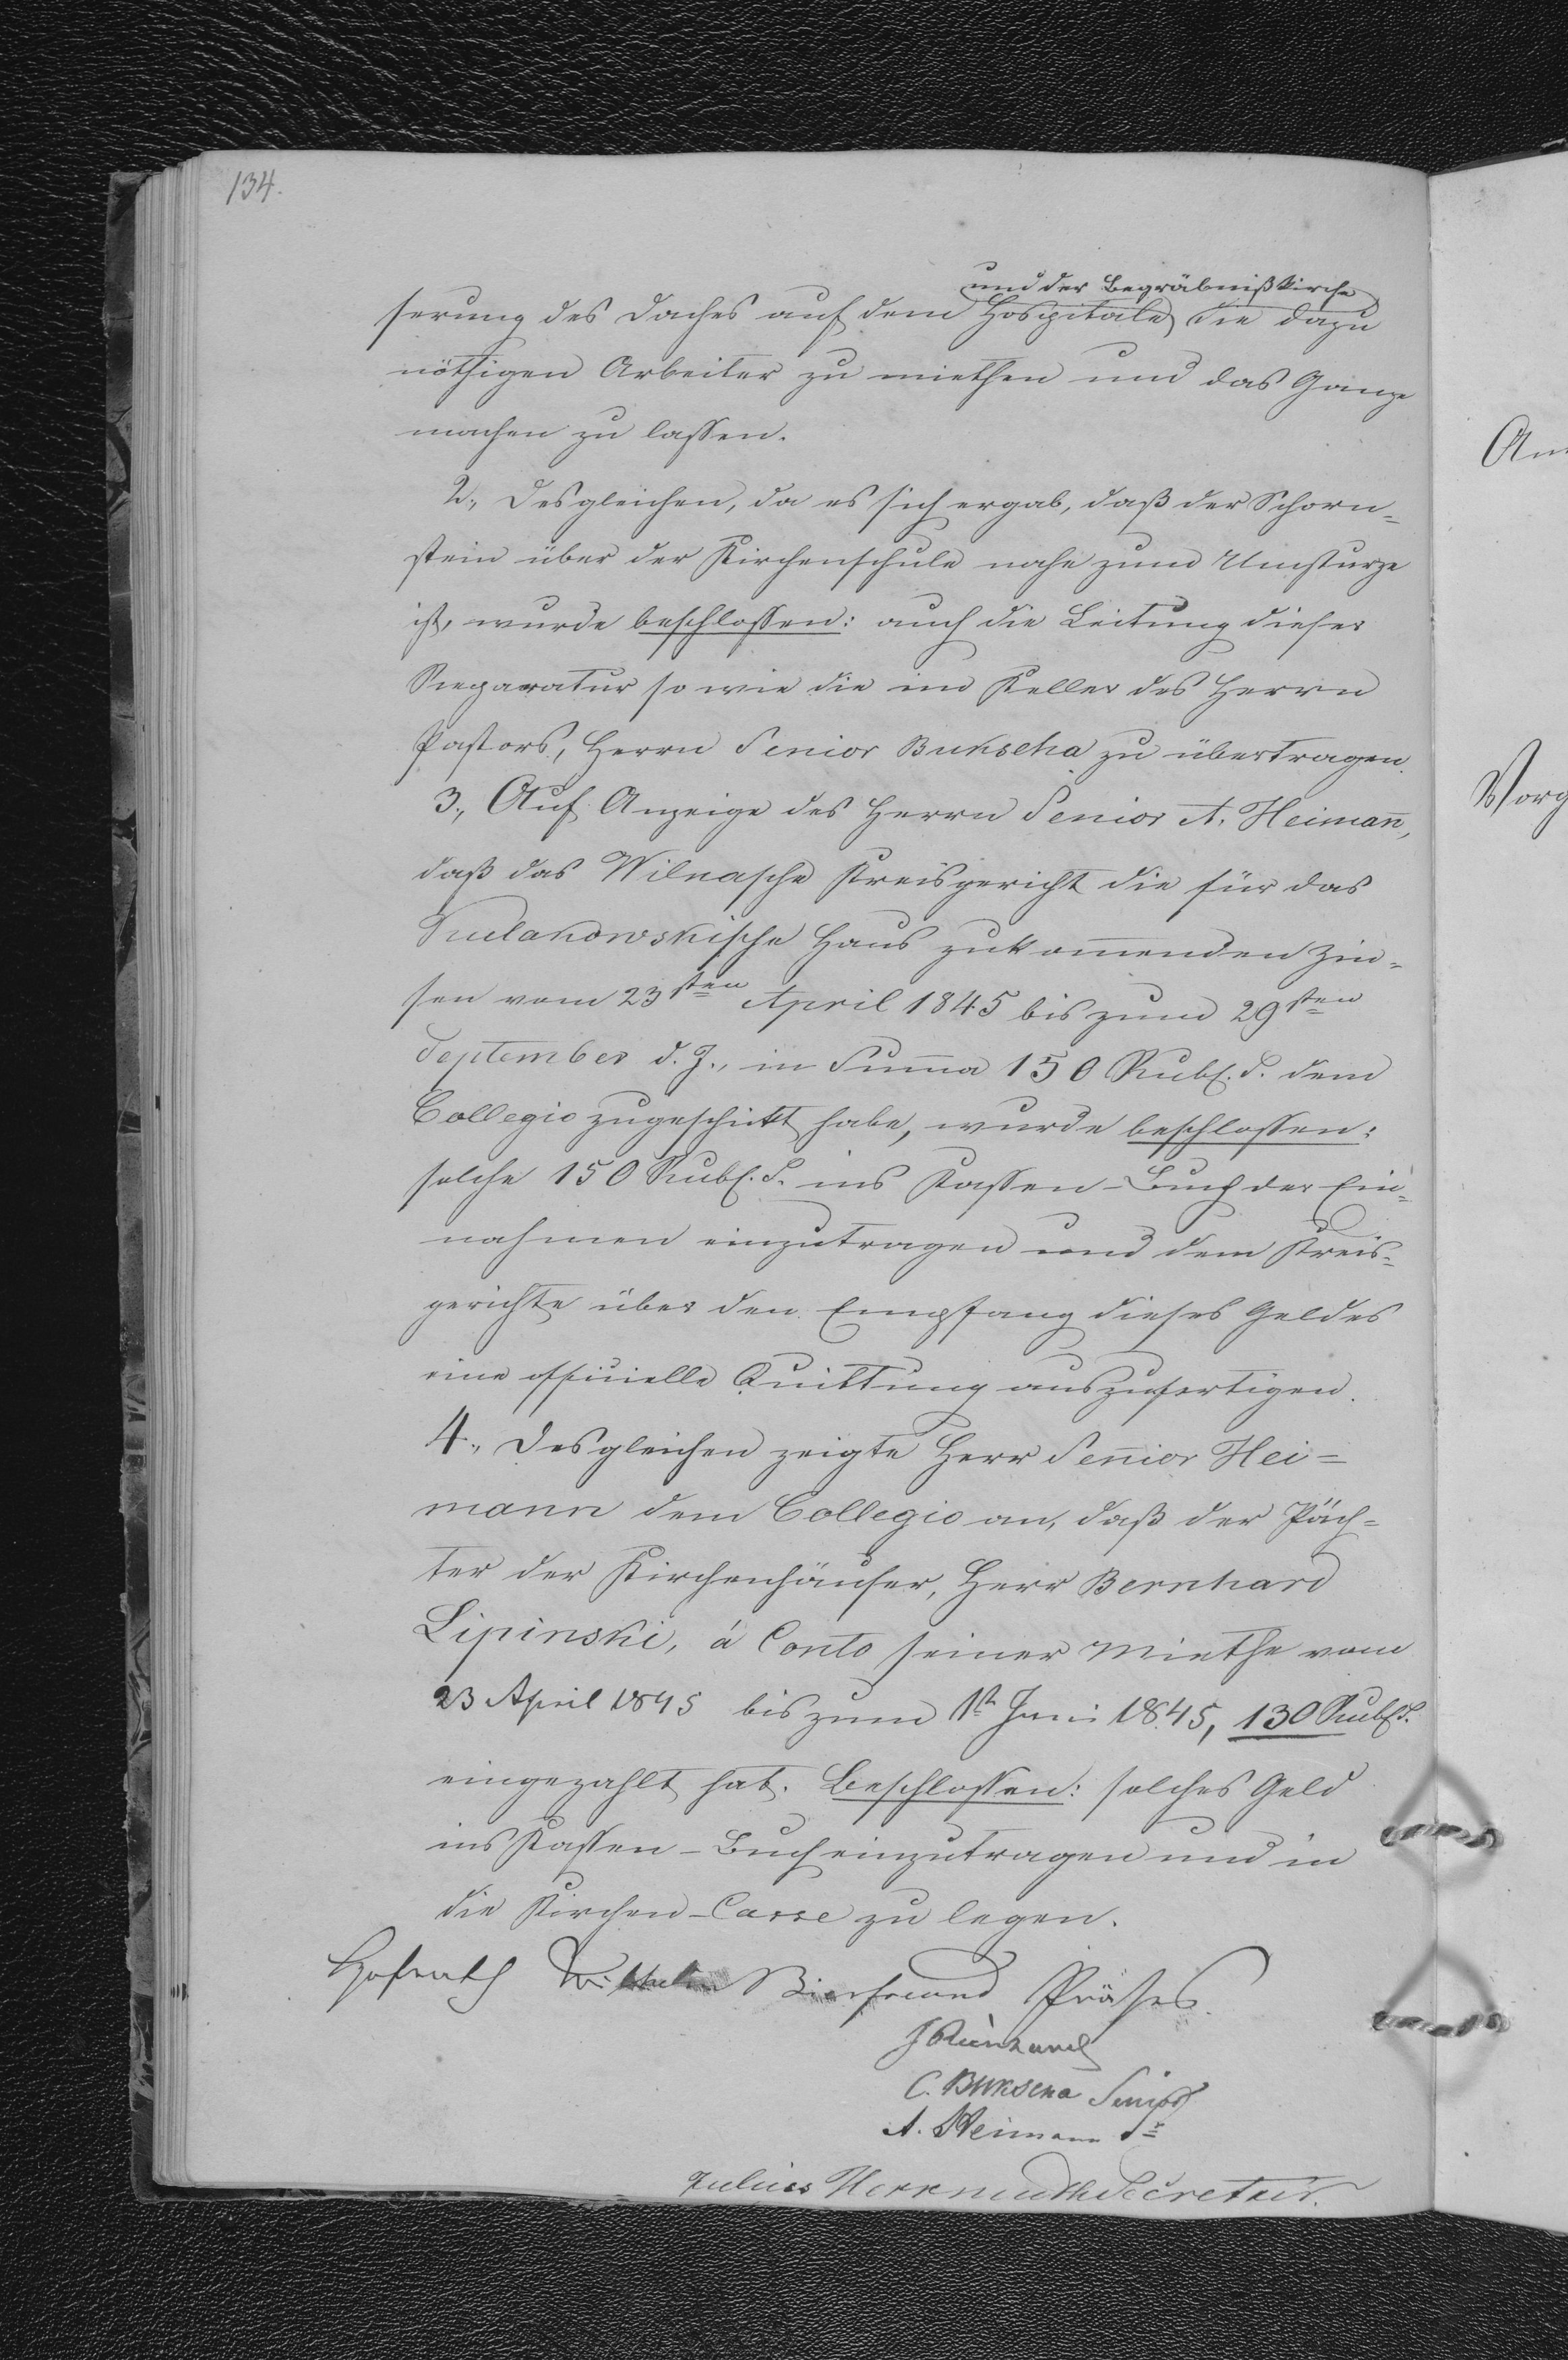 134.
und der Begräbnißkirche
serung des Daches auf dem Hospitale die dazu
nöthigen Arbeiter zu miethen und das Ganze
machen zu lassen.
2., Desgleichen, da es sich ergab, daß der Schorn-
stein über der Kirchenschule nahe zum Umsturze
ist, wurde beschlossen: auch die Leitung dieser
Reparatur so wie die im Keller des Herrn
Pastors, Herrn Senior Bukscha zu übertragen.
3., Auf Anzeige des Herrn Senior A. Heimañ,
daß das Wilnasche Kreisgericht die für das
Kulakowskische Haus zukom̄enden Zin-
sen vom 23sten April 1845 bis zum 29sten
September d. J., in Sum̄a 150 Rubl. S. dem
Collegio zugeschickt habe, wurde beschlossen:
solche 150 Rubl. S. ins Kassen-Buch der Ein-
nahmen einzutragen und dem Kreis-
gerichte über den Empfang dieses Geldes
eine officielle Quittung auszufertigen.
4., Desgleichen zeigte Herr Senior Hei=
mann dem Collegio an, daß der Päch-
ter der Kirchenhäuser, Herr Bernhard
Lipinski, á Conto seiner Miethe vom
23 April 1845 bis zum 1st Juni 1845, 130 Rubl. S.
eingezahlt hat. Beschlossen: solches Geld
ins Kassen-Buch einzutragen und in
die Kirchen-Casse zu legen.
Hofrath Wilhelm Bierfreund Präses.
C. Bukscha Senior
A. Heimann Sr
Julius Herrmuth Secretair.
An
Vorg